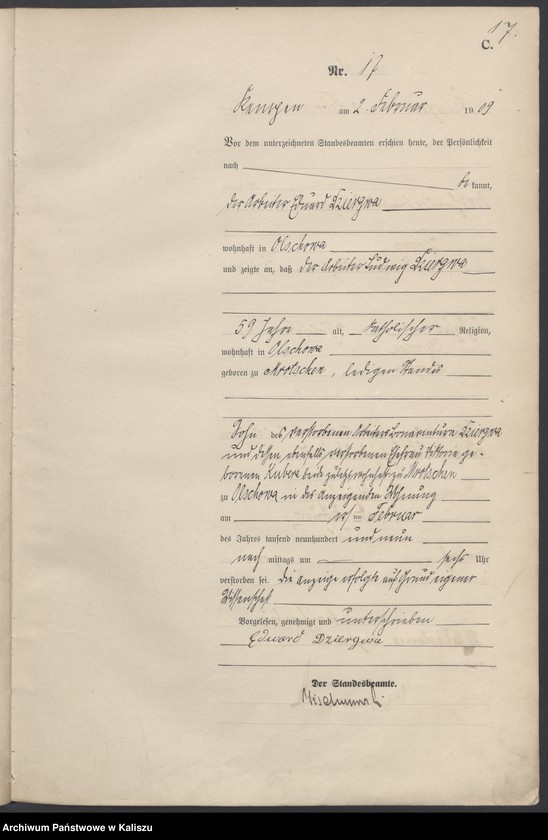 17.
C.
Nr. 17
Kempen am 2. Februar 1909
Vor dem unterzeichneten Standesbeamten erschien heute, der Persönlichkeit
nach be kannt,
der Arbeiter Eduard Dziergwa
wohnhaft in Olschowa
und zeigte an, daß der Arbeiter Ludwig Dziergwa
59 Jahre alt, katholischer Religion,
wohnhaft in Olschowa
geboren zu Mrotschen, ledigen Standes
Sohn des verstorbenen Arbeiters Bonaventura Dziergwa
und dessen ebenfalls verstorbenen Ehefrau Viktoria ge-
borenen Kubera, beide zuletzt wohnhaft zu Mrotschen
zu Olschowa in des Anzeigenden Wohnung
am ersten Februar
des Jahres tausend neunhundert und neun
nach mittags um sechs Uhr
verstorben sei. Die Anzeige erfolgte auf Grund eigener
Wissenschaft.
Vorgelesen, genehmigt und unterschrieben
Edward Dziergwa
Der Standesbeamte.
Archiwum Państwowe w Kaliszu